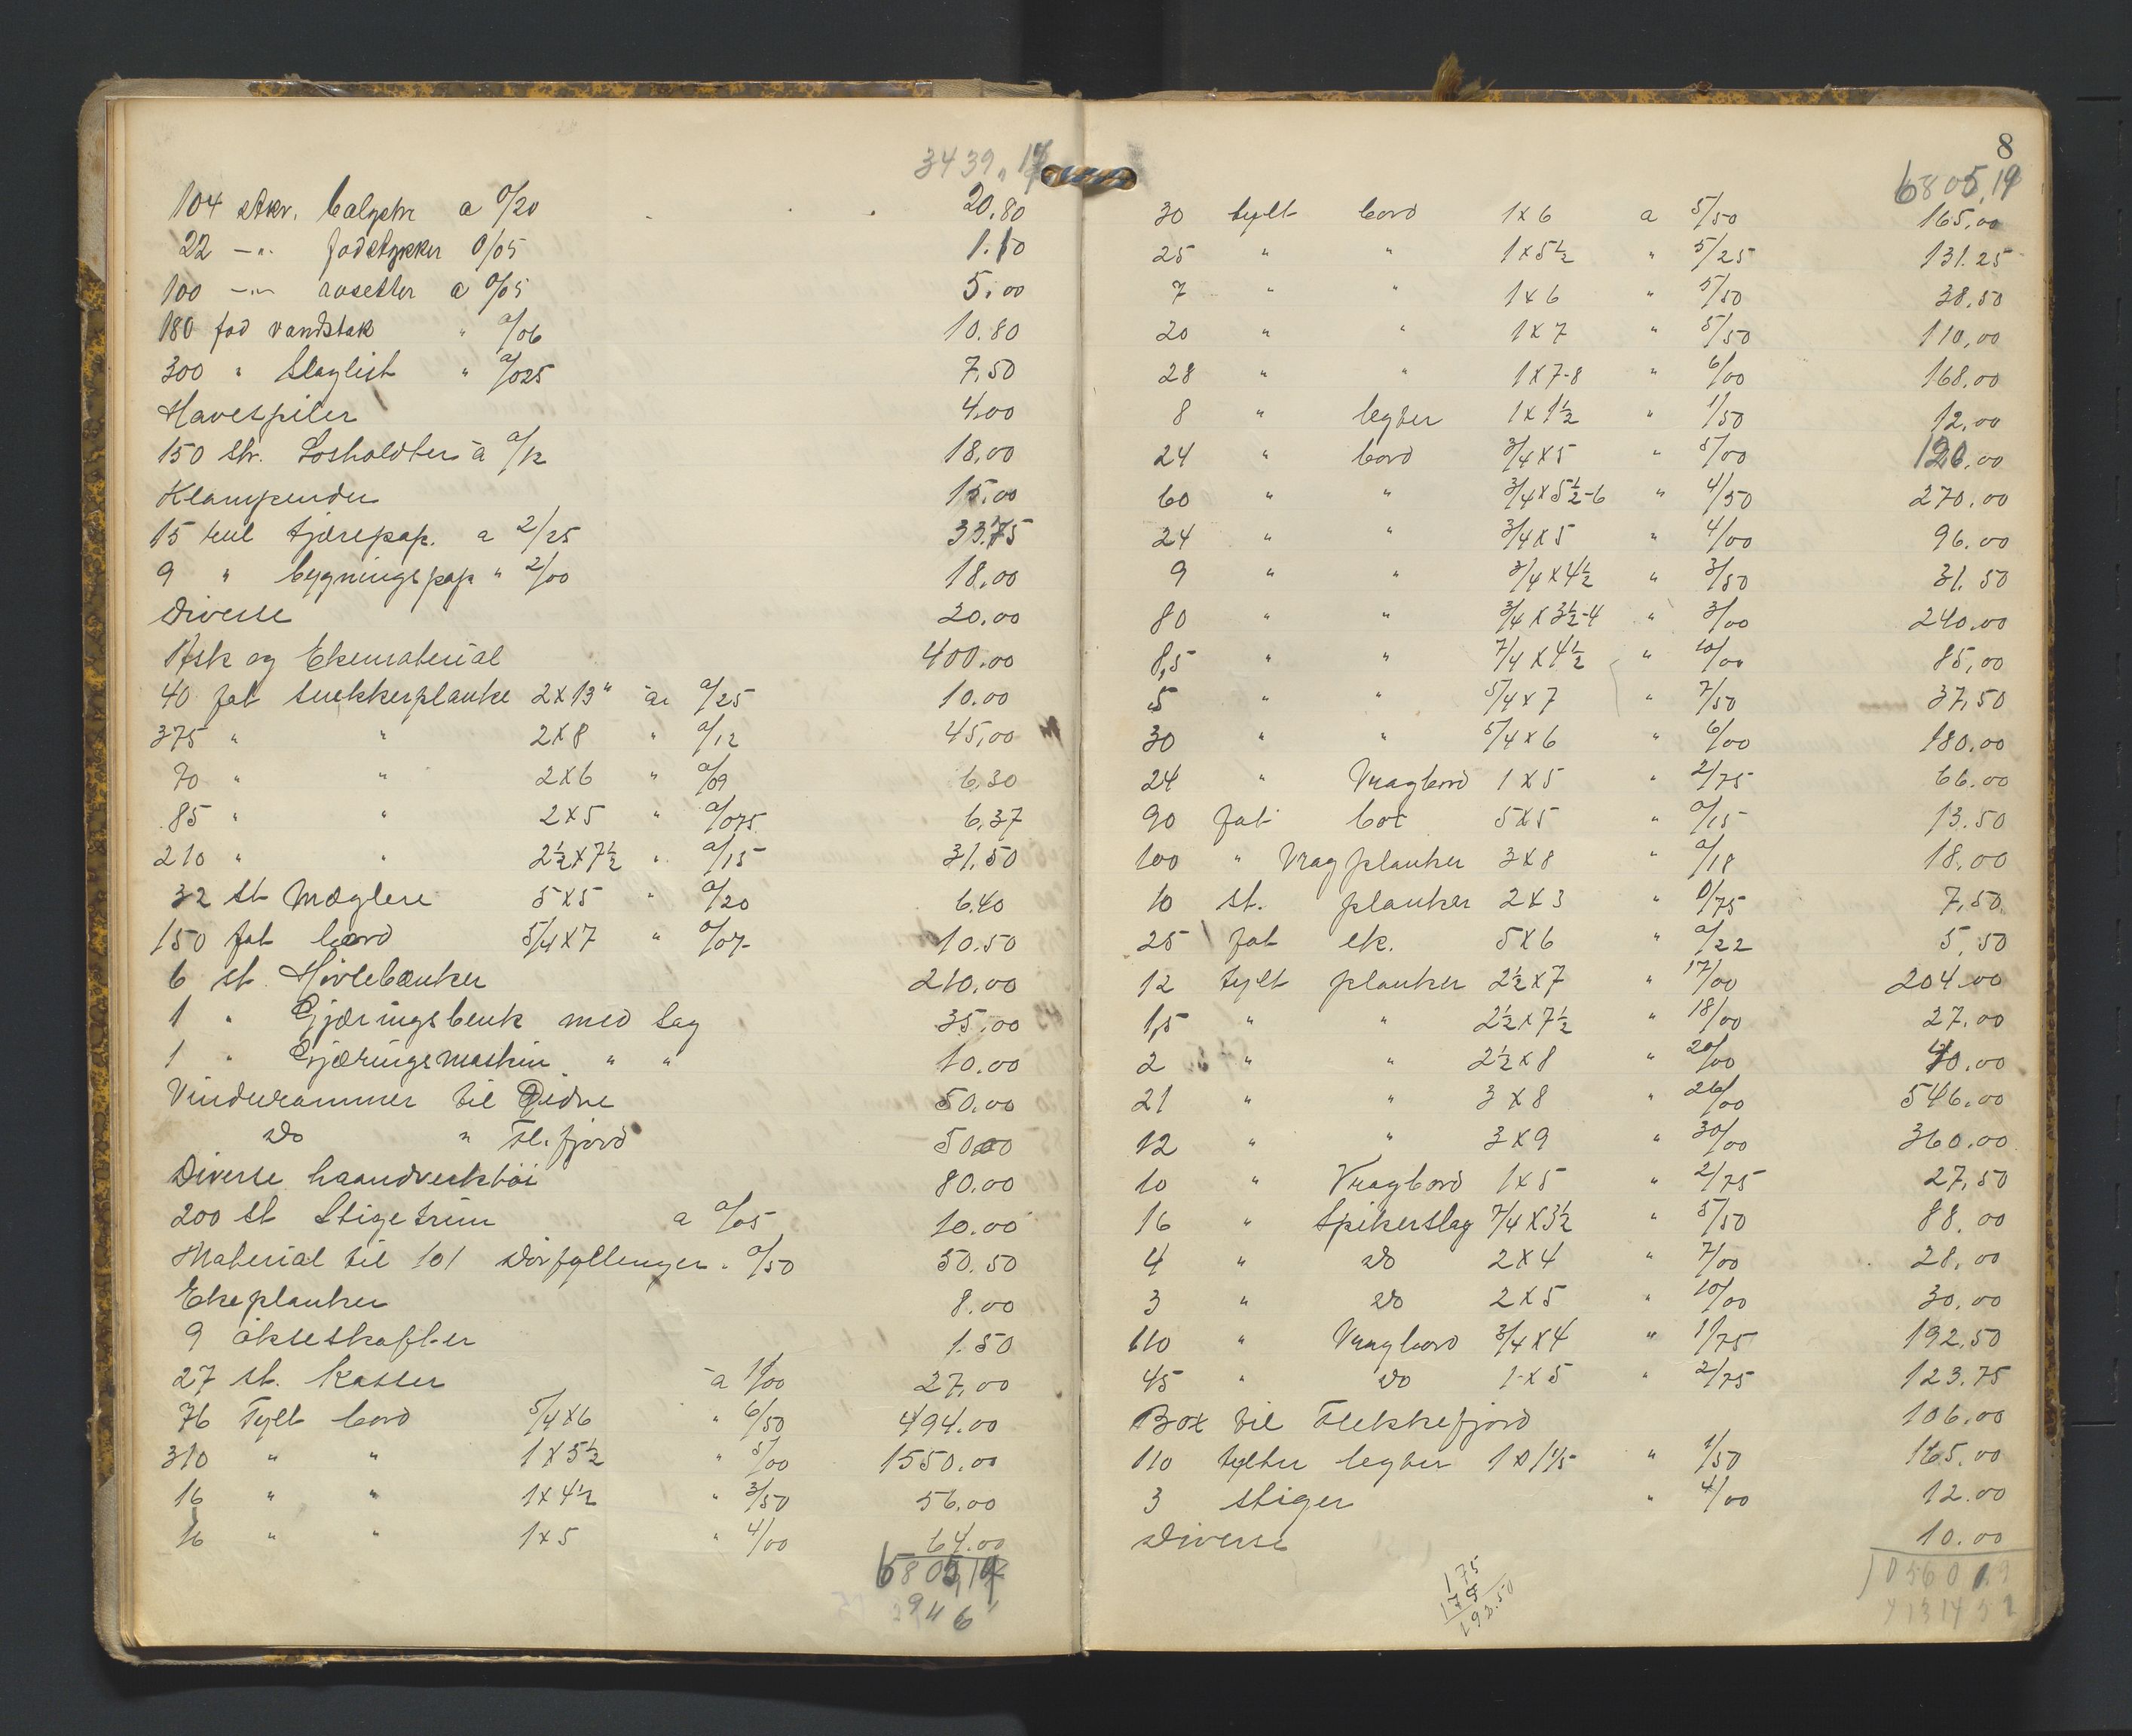 3439.17
104 stkr. balystr a 0/20 20.80
22 -"- fodstykker 0/05 1.10
100 -"- avsetter a 0/05 5.00
180 fod vandstak " 0/06 10.80
300 " Slaglist " 0/025 7,50
Havespiler 4.00
150 str. Losholdter a 0/12 18,00
15.00
15 rul tjærepap. a 2/25 33.75
9 " bygningspap " 2/00 18.00
Diverse 20.00
Ask og Ekematerial 400.00
40 fot snekkerplanke 2x13" a 0/25 10.00
375 " " 2x8 " 0/12 45,00
70 " " 2x6 " 0/09 6,30
85 " " 2x5 " 0/075 6,37
210 " " 2½x7½ " 0/15 31.50
32 st Mæglere 5x5 " 0/20 6.40
150 fot bord 5/4x7 " 0/07 10.50
6 st. Hövlebænker 210.00
1 " Gjæringsbenk med sag 35.00
1 " Gjæringsmaskin " " 10.00
Vinduerammer til Gedne 50.00
Do " Fl.fjord 50.00
Diverse haandverktöi 80.00
200 st Stigetrin a 0/05 10.00
Material til 101 Dörfyllinger " 0/50 50.50
Ekeplanker 8.00
9 økseskafter 1.50
27 st. Kasser a 1/00 27.00
76 Tylt bord 5/4x6 " 6/50 494.00
310 " " 1x5½ " 5/00 1550.00
16 " " 1x4½ " 3/50 56.00
16 " " 1x5 " 4/00 64.00
6805,19
8
6805,19
30 tylt bord 1x6 a 5/50 165,00
25 " " 1x5½ " 5/25 131.25
7 " " 1x6 " 5/50 38,50
20 " " 1x7 " 5/50 110,00
28 " " 1x7-8 " 6/00 168.00
8 " legter 1x1½ " 1/50 12,00
24 " bord 3/4x5 " 5/00 120.00
60 " " 3/4x5½-6 " 4/50 270.00
24 " " 3/4x5 " 4/00 96.00
9 " " 3/4x4½ " 3/50 31.50
80 " " 3/4x3½-4 " 3/00 240.00
8,5 " " 7/4x4½ " 10/00 85,00
5 " " 5/4x7 " 7/50 37,50
30 " " 5/4x6 " 6/00 180.00
24 " Vragbord 1x5 " 2/75 66.00
90 fot bot 5x5 " 0/15 13.50
100 " Vragplanker 3x8 " 0/18 18.00
10 st. planker 2x3 " 0/75 7,50
25 fot ek. 5x6 " 0/22 5.50
12 tylt planker 2½x7 " 17/00 204.00
1,5 " " 2½x7½ " 18/00 27.00
2 " " 2½x8 " 20/00 40.00
21 " " 3x8 " 26/00 546.00
12 " " 3x9 " 30/00 360.00
10 " Vragbord 1x5 " 2/75 27,50
16 " Spikerslag 7/4x3½ " 5/50 88.00
4 " Do 2x4 " 7/00 28.00
3 " Do 2x5 " 10/00 30.00
110 " Vragbord 3/4x4 " 1/75 192.50
45 " Do 1x5 " 2/75 123.75
Box til Flekkefjord 106.00
110 tylter legter 1x1½ " 1/50 165.00
3 Stiger " 4/00 12.00
Diverse 10.00
10560.19
175
175
192.50